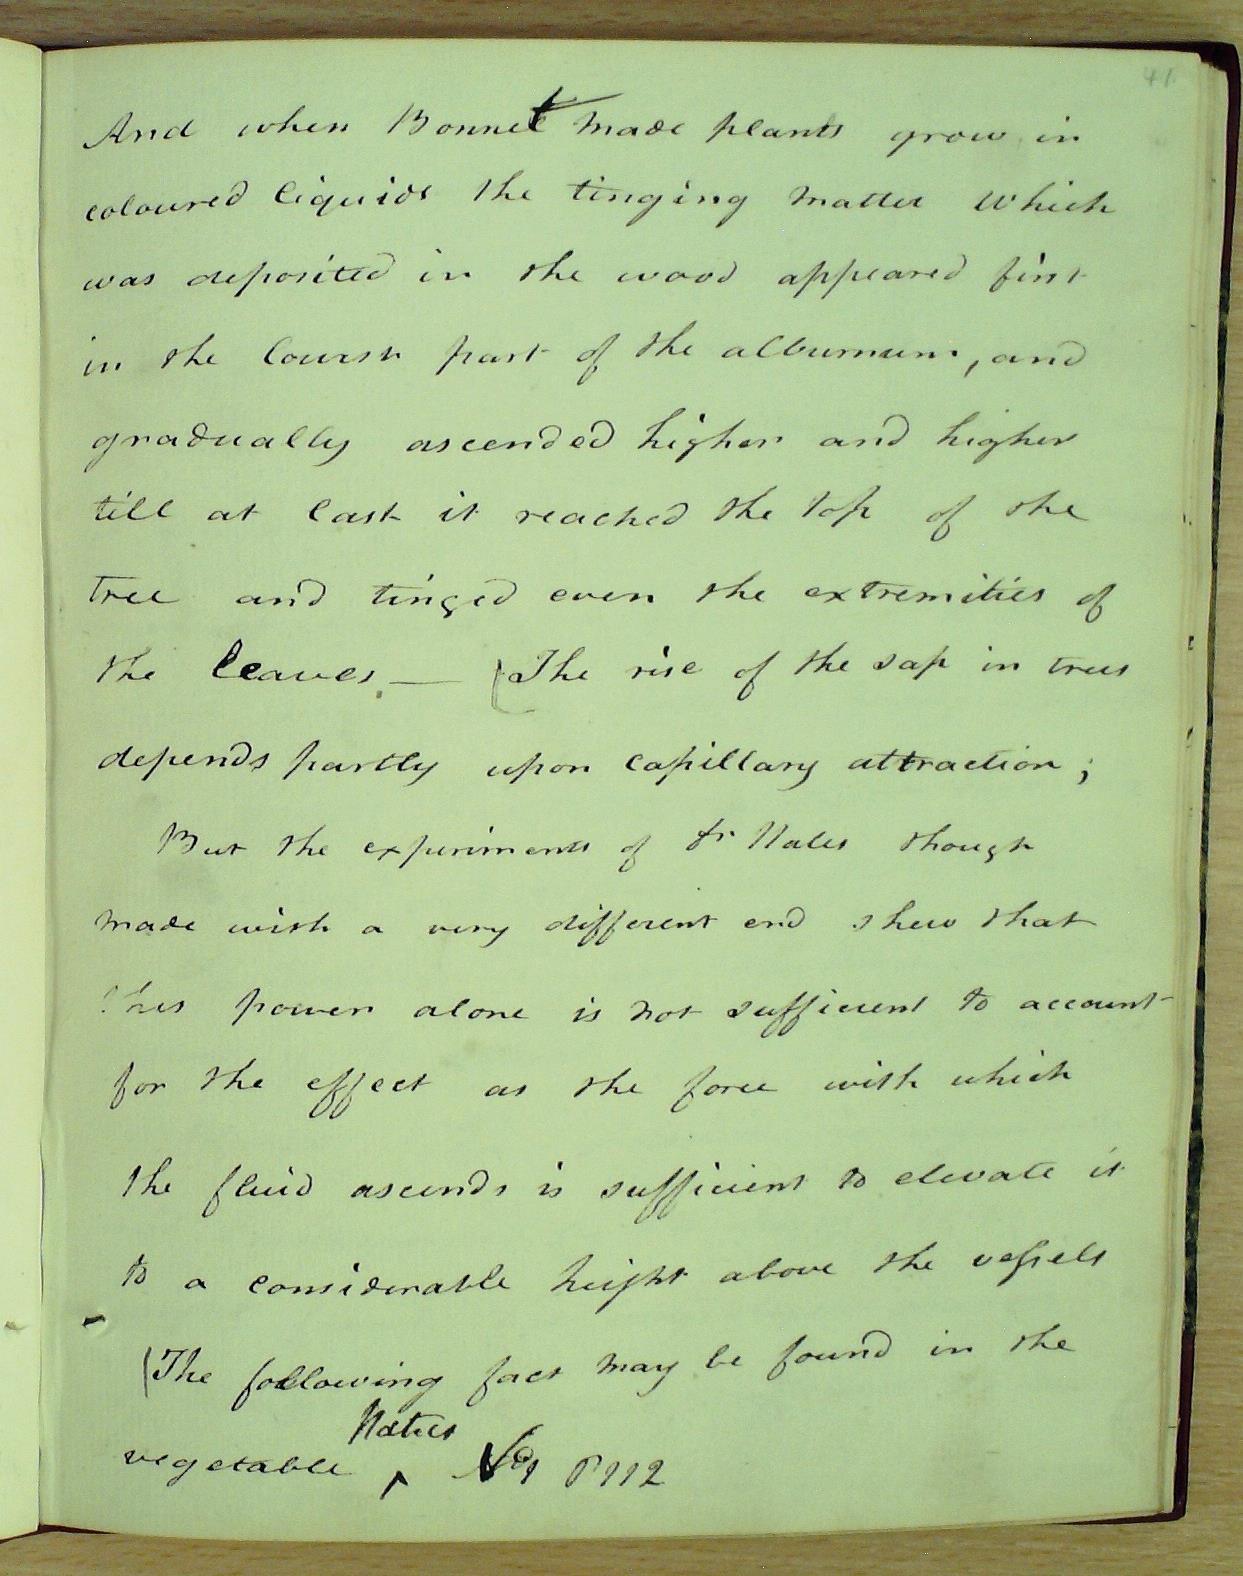 41
And when Bonnet made plants grow in
coloured liquids the tinging matter which
was deposited in the wood appeared first
in the lowest part of the alburnum, and
gradually ascended higher and higher
till at last it reached the top of the
tree and tinged even the extremities of
the leaves. — (The rise of the sap in trees
depends partly upon capillary attraction;
But the experiments of dr Hales though
made with a very different end shew that
this power alone is not sufficient to account
for the effect as the force with which
the fluid ascends is sufficient to elevate it
to a considerable height above the vessels
(The following fact may be found in the
Statics
vegetable ^ P 112